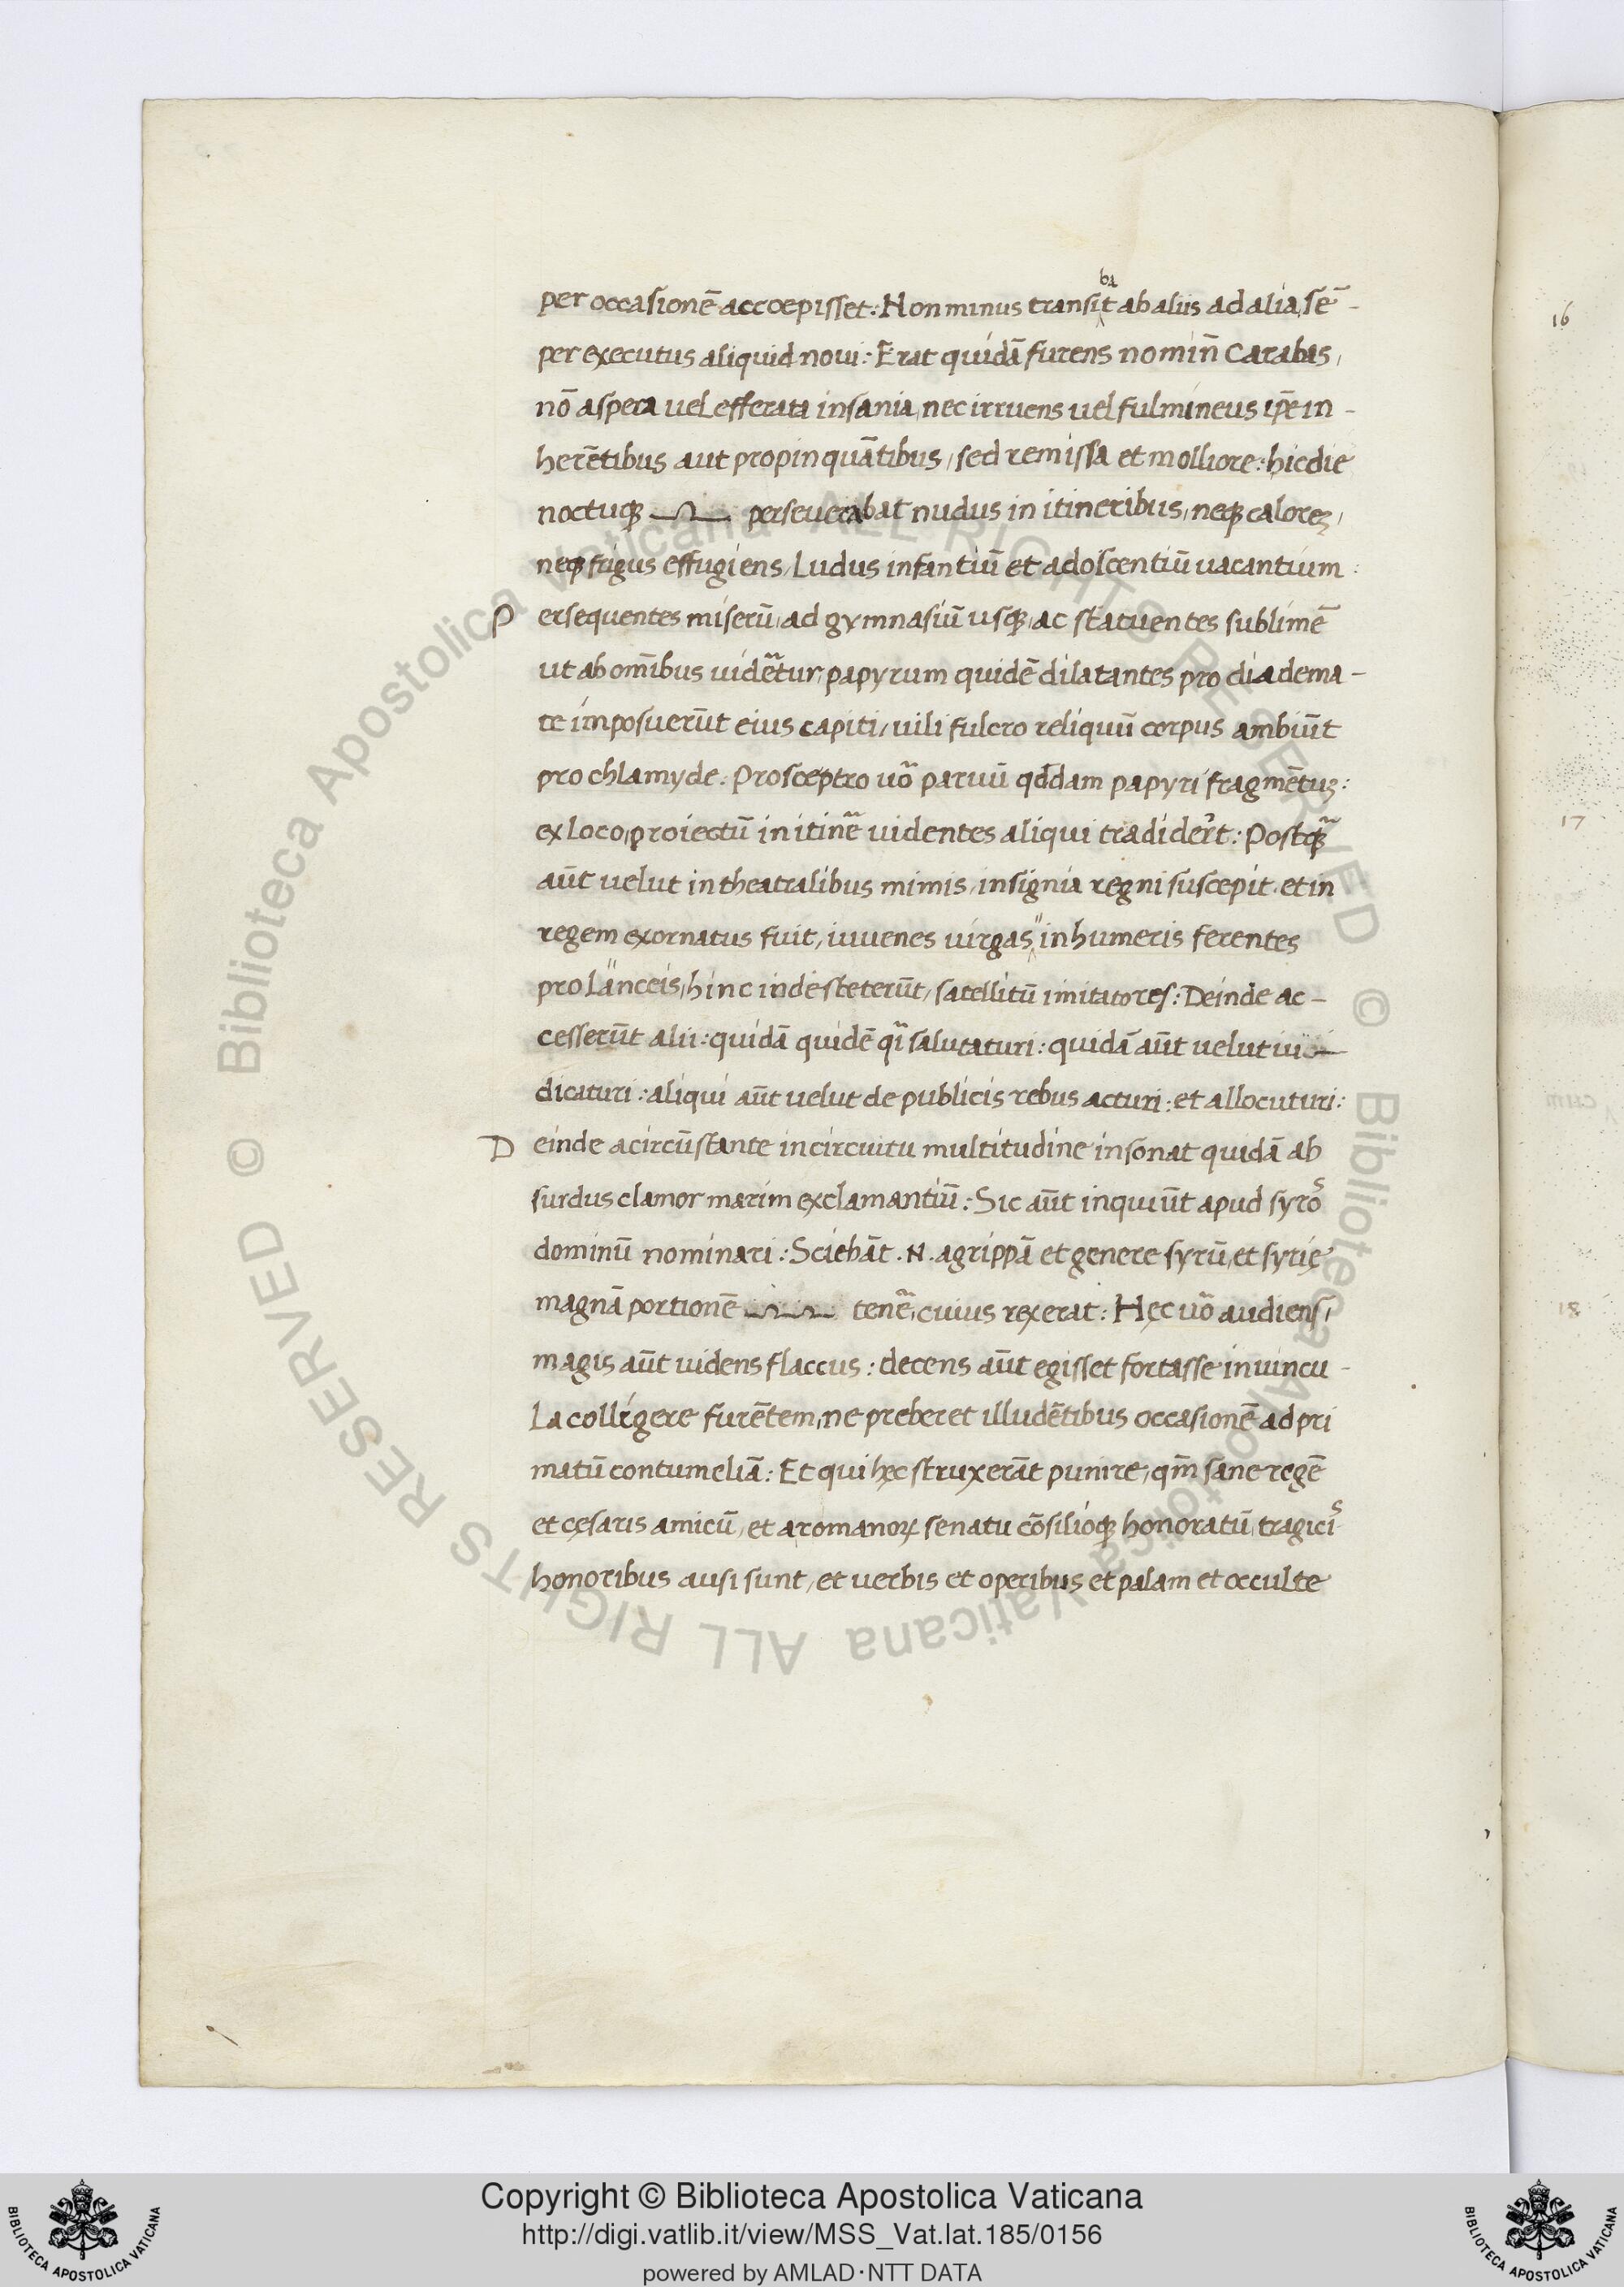 per occasionē accoepisset: Non minus transibat ab aliis ad alia, sē-
per executus aliquid noui: Erat quidā furens nomin̄ Carabas,
nō aspera uel efferata insania, nec irruens uel fulmineus ip̄e in-
herētibus aut propinquātibus, sed remissa et molliore: hic die
noctuq; perseuerabat nudus in itineribus, neq; calorez,
neq; frigus effugiens, Ludus infantiū et adolscentiū uacantium:
P ersequentes miserū, ad gymnasiū usq;, ac statuentes sublimē
ut ab om̄ibus uidētur, papyrum quidē dilatantes pro diadema-
te imposuerūt eius capiti, uili fulcro reliquū corpus ambiūt
pro chlamyde. Pro sceptro uō paruū qddam papyri fragmētuz:
ex loco, proiectū in itinē uidentes aliqui tradider̄t: Postq̄;
aūt uelut in theatralibus mimis, insignia regni suscepit. et in
regem exornatus fuit, iuuenes uirgas, in humeris ferentes
pro lanceis, hinc inde steterūt, satellitū imitatores: Deinde ac-
cesserūt alii: quidā quidē q̄i salutaturi: quidā aūt uelut iu-
dicaturi: aliqui aūt uelut de publicis rebus acturi: et allocuturi:
D einde a circūstante in circuitu multitudine insonat quidā ab
surdus clamor marim exclamantiū: Sic aūt inquiūt apud syros
dominū nominari: Sciebāt .N. agrippā et genere syrū, et syrię
magnā portionē tenē, cuius rex erat: Hęc uō audiens,
magis aūt uidens flaccus: decens aūt egisset fortasse in uincu-
la colligere furētem, ne preberet illudētibus occasionē ad pri
matū contumeliā: Et qui hęc struxerāt punire, qm̄ sane regē
et cęsaris amicū, et a romanoꝝ senatu cōsilioq; honoratū, tragicis
honoribus ausi sunt, et uerbis et operibus et palam et occulte
16
17
18
© Biblioteca Apostolica Vaticana ALL RIGHTS RESERVED © Biblioteca Apostolica Vaticana ALL RIGHTS RESERVED
Copyright © Biblioteca Apostolica Vaticana
http://digi.vatlib.it/view/MSS_Vat.lat.185/0156
powered by AMLAD·NTT DATA
BIBLIOTECA APOSTOLICA VATICANA
BIBLIOTECA APOSTOLICA VATICANA